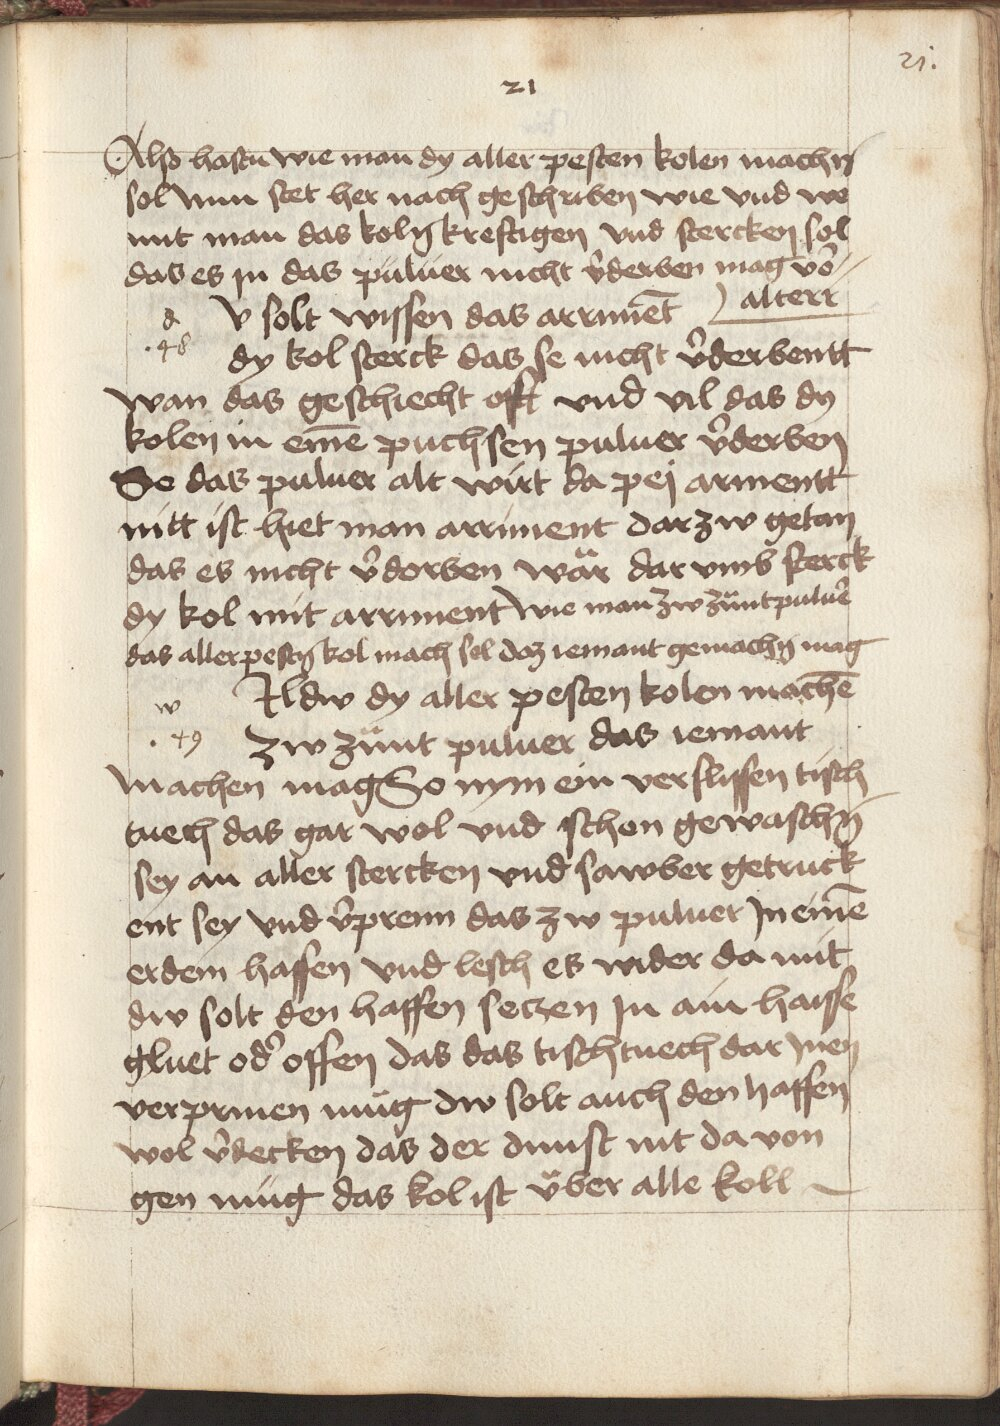 21.
21
Also hastu wie man dy aller pesten kolen machn̄
sol Nun stet her nach geschriben wie vnd we
mit man das koln kreftigen vnd stercken sol
das es in das puluer nicht v̾derben mag vo᷑
alterr
d
v solt wissen das arrimēt
.48
dy kol sterck das se nicht v̾derbentt
wan das geschiecht offt vnd vil das dy
kolen in eim̄e puchsen puluer v̾derben
Se das puluer alt wirt da pej armentt
nitt ist hiet man arriment darzw getan
das es nicht v̾dorben wär dar vmb sterck
dy kol mit arriment wie man zw zünt puluer̾
das aller pestn̄ kol mach sol daz iemant gemachn̄ mag
w
Ildw dy aller pesten kolen machē
.49
zw zünt puluer das iemant
machen mag So nym ein verslissen tisch
tuech das gar wol vnd schon gewaschn̄
sey an aller stercken vnd sawber getruck
ent sey vnd v̾prenn das zw puluer In eim̄e
erdein haffen vnd lesch es wider da mit
dw solt den haffen seczen In ain haisse
gluet od̾ offen das das tischtuech dar Inen
verprinen müg dw solt auch den haffen
wol v̾decken das der dunst nit da von
gen müg das kol ist über alle koll